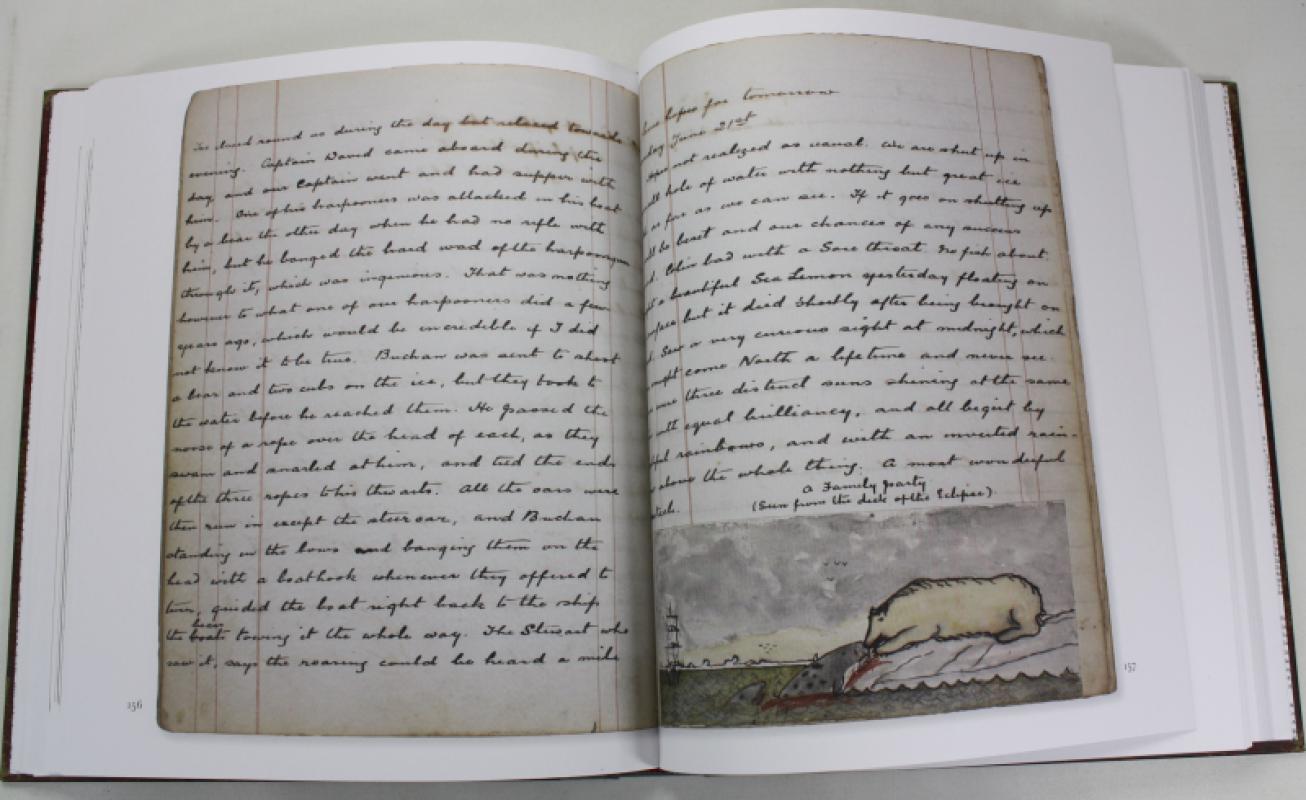 round as during the day but
evening. Captain David came aboard during the
day and our Captain went and had supper with
him. One of his harpooners was attacked in his boat
by a bear the other day when he had no rifle with
him, but he banged the hard wad of the harpoongun
through it, which was ingenious. That was nothing
however to what one of our harpooners did a few
years ago, which would be incredible if I did
not know it to be true. Buchan was sent to shoot
a bear and two cubs on the ice, but they took to
the water before he reached them. He passed the
noose of a rope over the head of each, as they
swam and snarled at him, and tied the ends
of the three ropes to his thwarts. All the oars were
then run in except the steer oar, and Buchan
standing in the bows and banging them on the
head with a boathook whenever they offered to
turn, guided the boat right back to the ship
bears
the boat towing it the whole way. The Stewart who
saw it, says the roaring could be heard a mile
156
hopes for tomorrow
June 21st
not realized as usual. We are shut up in
hole of water with nothing but great ice
as far as we can see. If it goes on shutting up
be beset and our chances of any success
Colin bad with a Sore throat. No fish about.
a beautiful Sea Lemon yesterday floating on
but it died shortly after being brought on
Saw a very curious sight at midnight, which
might come North a lifetime and never see.
were three distinct suns shining at the same
with equal brilliancy, and all begirt by
rainbows, and with an inverted rain-
above the whole thing. A most wonderful
A Family party
(Seen from the deck of the Eclipse).
157